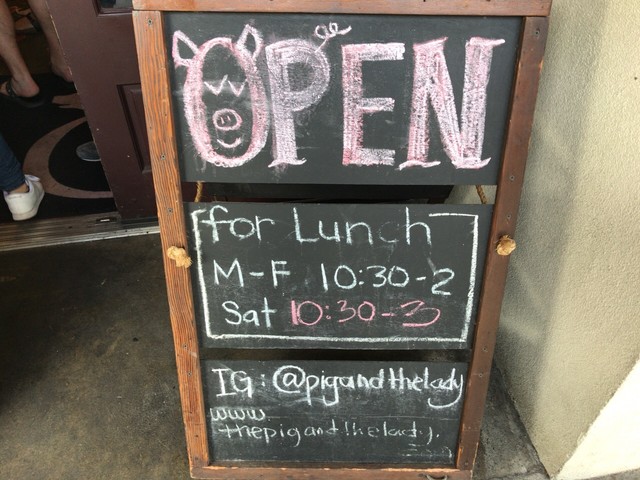 OPEN
for Lunch
M-F 10:30-2
Sat 10:30-3
IG: @pigandthelady
www.
thepigandthelady.